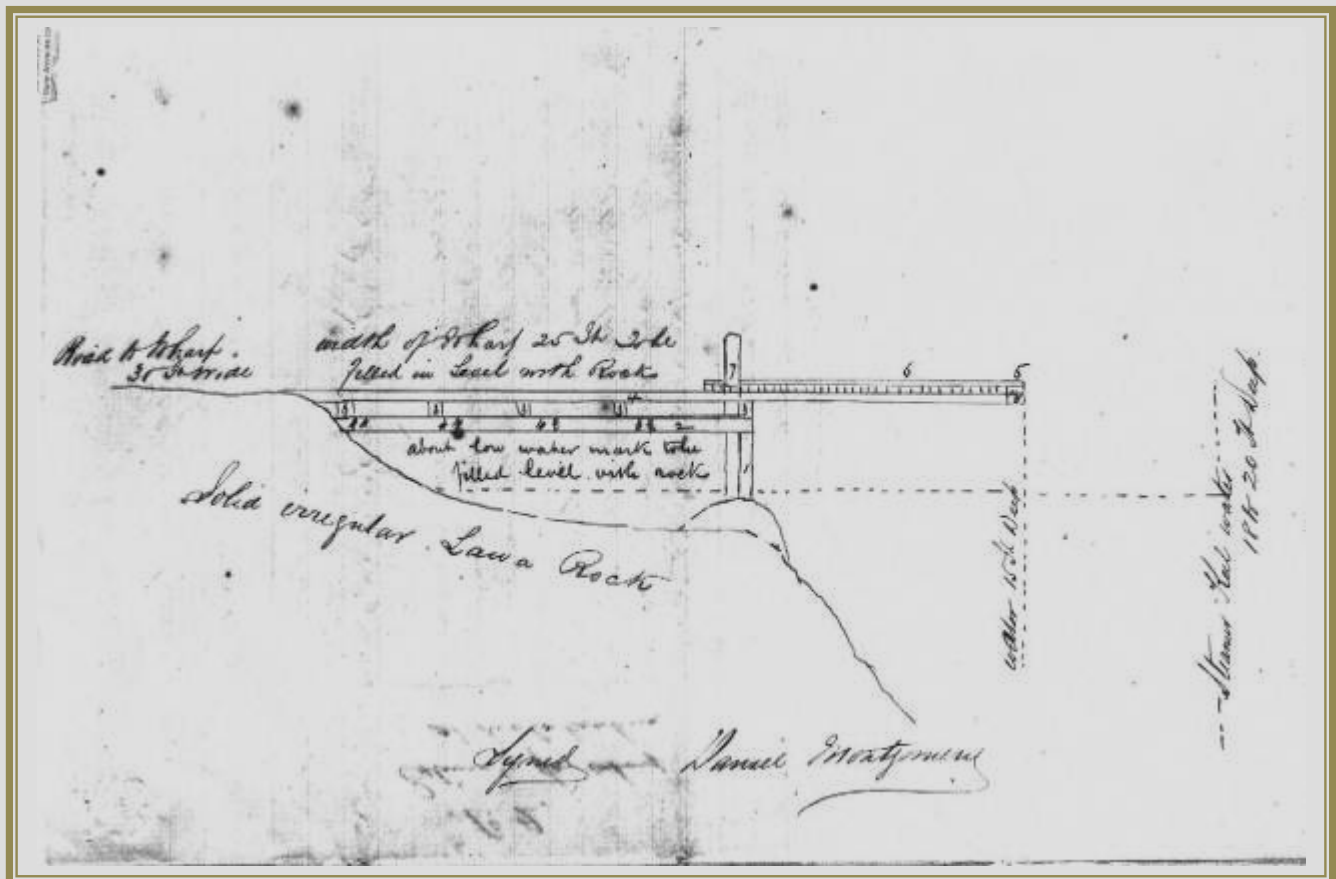 Road to Wharf.
30 Ft Wide
width of Wharf 25 Ft To be
filled in Level with Rock
7
6
5
4
3
3
3
3
3
2
about low water mark to be
filled level with rock
1
Solid irregular Lava Rock
water 15 Ft Deep
Steamer Keel water
18 to 20 Ft Deep
Syned Daniel Montgomerie